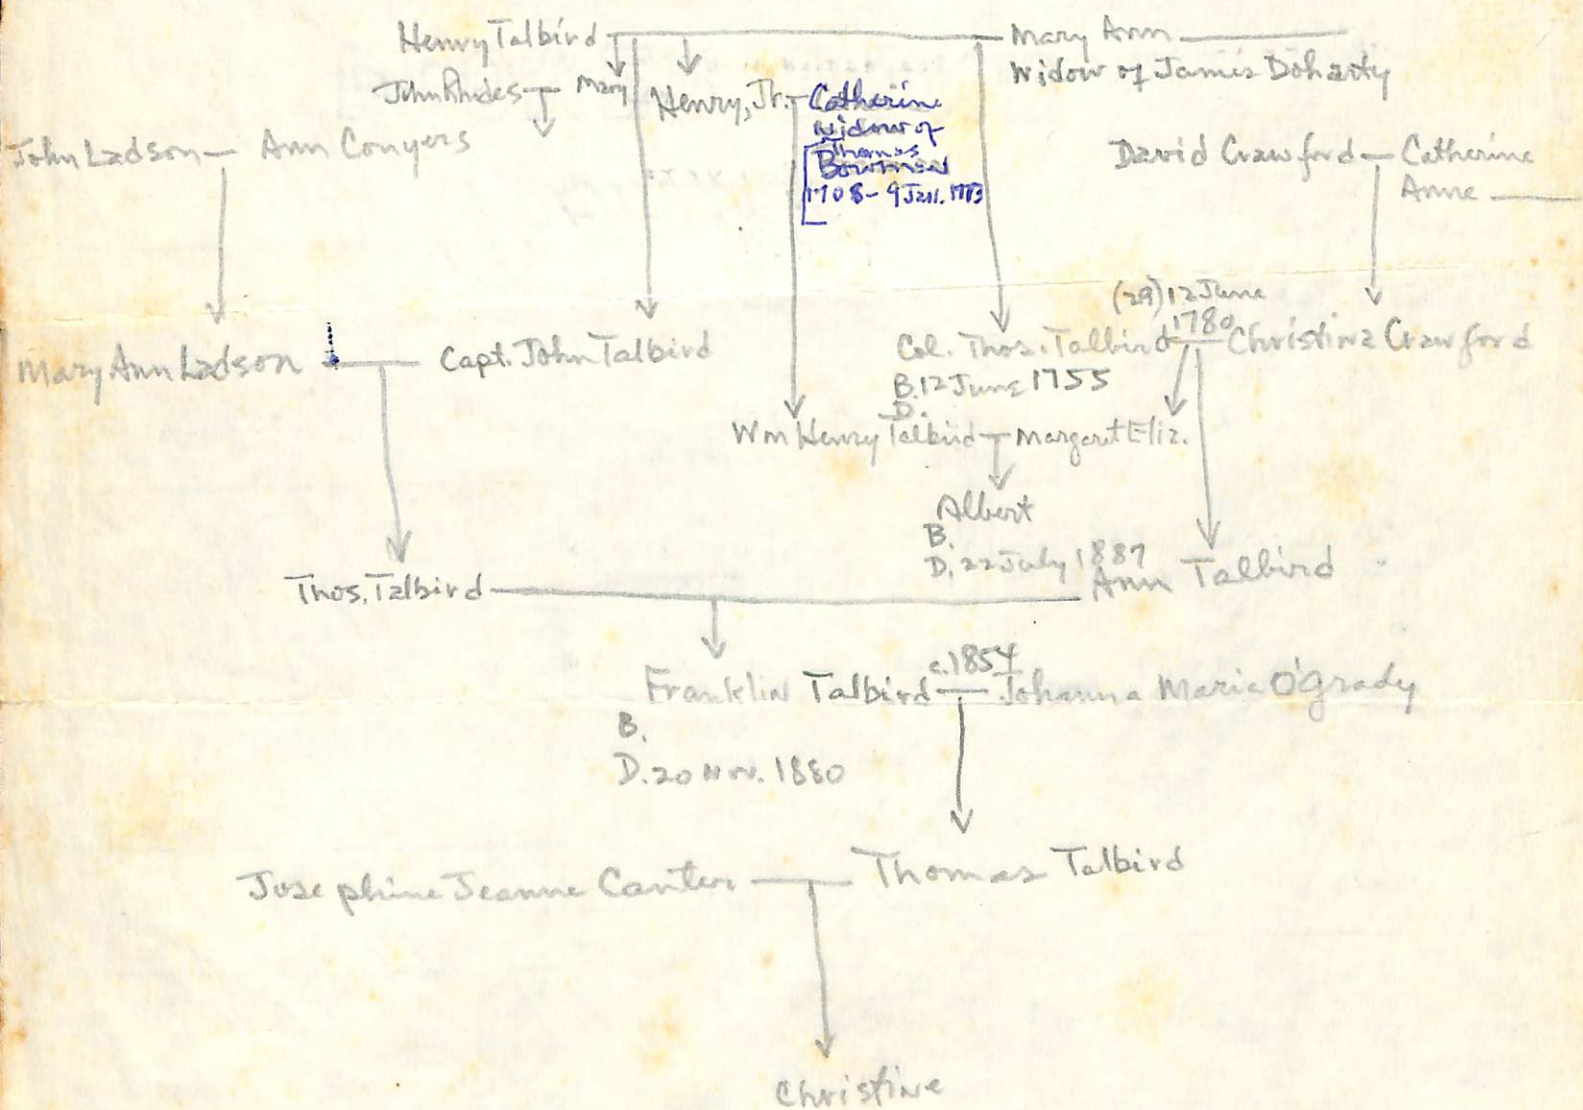 Henry Talbird
Mary Ann
Widow of James Doharty
John Rhodes
Mary
Henry, Jr.
Catherine
Widow of
Thomas
Bowman
1708-9 Jan.
John Ladson
Ann Conyers
David Crawford
Catherine
Anne
Mary Ann Ladson
Capt. John Talbird
Col. Thos. Talbird
(29) 12 June
1780
Christina Crawford
B. 12 June 1755
D.
Wm Henry Talbird
Margaret Eliz.
Albert
B.
D. 22 July 1887
Thos. Talbird
Ann Talbird
Franklin Talbird
c. 1854
Johanna Maria O'Grady
B.
D. 20 Nov. 1880
Josephine Jeanne Canter
Thomas Talbird
Christine